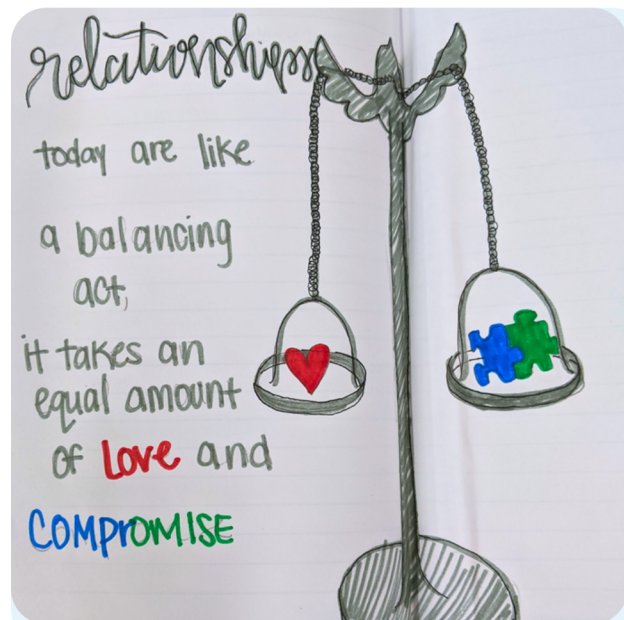 relationships
today are like
a balancing
act,
it takes an
equal amount
of Love and
COMPrOMISE